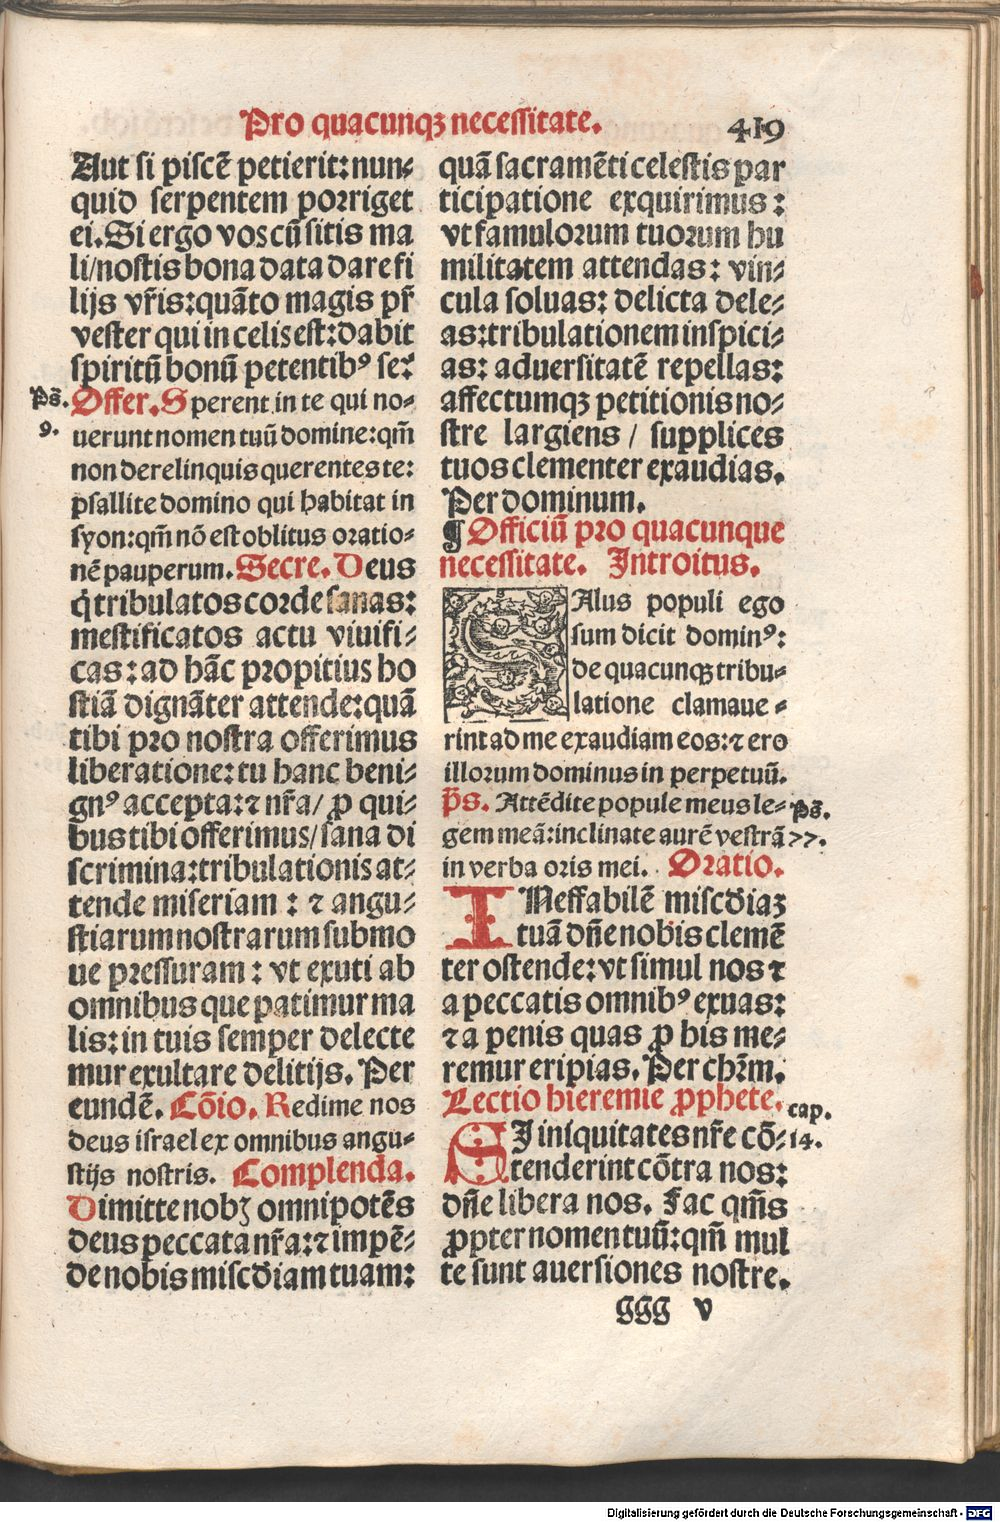 Pro quacunqꝫ necessitate.
419
Aut si piscē petierit: nun⸗
quid serpentem porriget
ei. Si ergo vos cū sitis ma
li/ nostis bona data dare fi
lijs vr̄is: quāto magis pr̄
vester qui in celis est: dabit
spiritū bonū petentibꝰ se:
Ps̄.
9.
Offer. Sperent in te qui no⸗
uerunt nomen tuū domine: qm̄
non derelinquis querentes te:
psallite domino qui habitat in
syon: qm̄ nō est oblitus oratio⸗
nē pauperum. Secre. Deus
q̇ tribulatos corde sanas:
mestificatos actu viuifi⸗
cas: ad hāc propitius ho
stiā dignāter attende: quā
tibi pro nostra offerimus
liberatione: tu hanc beni⸗
gnꝰ accepta: ⁊ nr̄a/ ꝓ qui⸗
bus tibi offerimus/ sana di
scrimina: tribulationis at⸗
tende miseriam : ⁊ angu⸗
stiarum nostrarum submo
ue pressuram : vt exuti ab
omnibus que patimur ma
lis: in tuis semper delecte
mur exultare delitijs. Per
eundē. Cōio. Redime nos
deus israel ex omnibus angu⸗
stijs nostris. Complenda.
Dimitte nobꝫ omnipotēs
deus peccata nr̄a: ⁊ impē⸗
de nobis misc̄diam tuam:
quā sacramēti celestis par
ticipatione exquirimus :
vt famulorum tuorum hu
militatem attendas : vin⸗
cula soluas: delicta dele⸗
as: tribulationem inspici⸗
as: aduersitatē repellas:
affectumqꝫ petitionis no⸗
stre largiens / supplices
tuos clementer exaudias.
Per dominum.
¶ Officiū pro quacunque
necessitate. Introitus.
SAlus populi ego
sum dicit dominꝰ:
de quacunqꝫ tribu⸗
latione clamaue⸗
rint ad me exaudiam eos: ⁊ ero
illorum dominus in perpetuū.
p̄s. Attēdite popule meus le⸗
Ps̄.
gem meā: inclinate aurē vestrā
77.
in verba oris mei. Oratio.
INeffabilē misc̄diaꝫ
tuā dn̄e nobis clemē
ter ostende: vt simul nos ⁊
a peccatis omnibꝰ exuas:
⁊ a penis quas ꝓ his me⸗
remur eripias. Per chr̄m.
Lectio hieremie ꝓphete.
cap.
14.
SI iniquitates nr̄e cō⸗
tenderint cōtra nos:
dn̄e libera nos. Fac qm̄s
ꝓpter nomen tuū: qm̄ mul
te sunt auersiones nostre.
ggg v
Digitalisierung gefördert durch die Deutsche Forschungsgemeinschaft - DFG